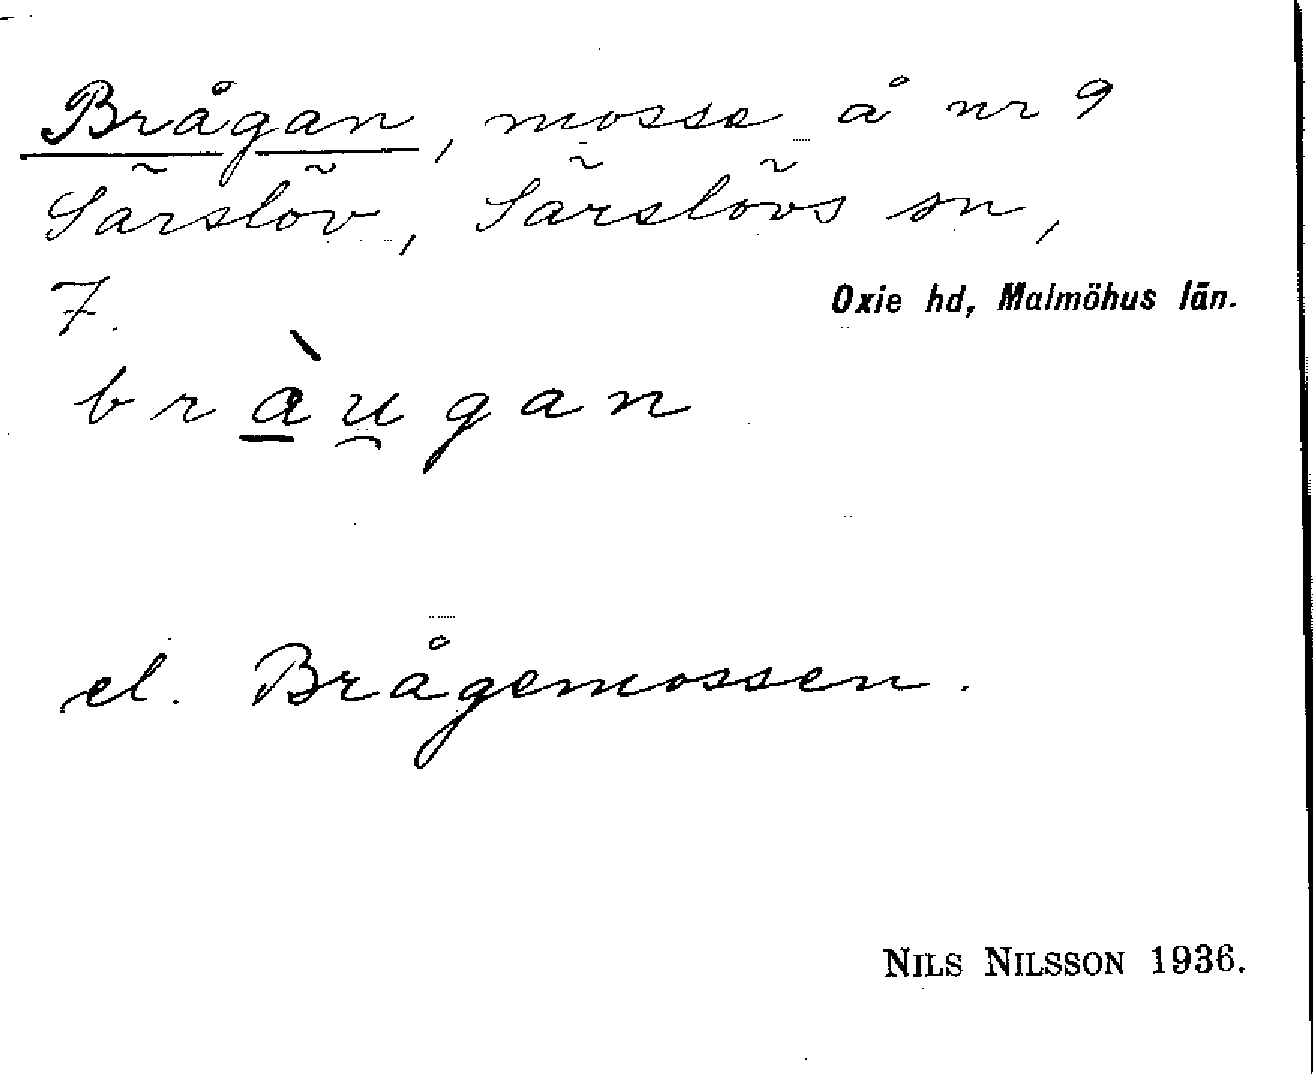 Brågan, mosse å nr 9
Särslöv, Särslövs sn,
7.
Oxie hd, Malmöhus län.
bràu̯gan
el. Brågemossen.
NILS NILSSON 1936.